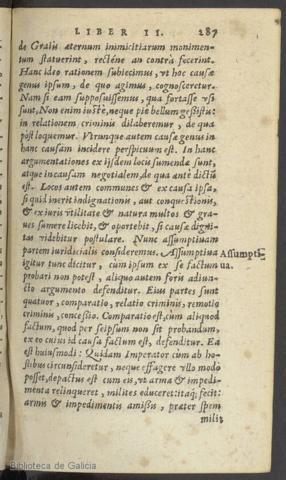 LIBER II. 287
de Graiis æternum inimicitiarum monimen-
tum statuerint, rectène an contrà fecerint.
Hanc ideo rationem subiecimus, vt hoc causæ
genus ipsum, de quo agimus, cognosceretur.
Nam si eam supposuissemus, qua fortasse vsi
sunt, Non enim iustè, neque piè bellum gessistis:
in relationem criminis dilaberemur, de qua
pòst loquemur. Vtrunque autem causæ genus in
hanc causam incidere perspicuum est. In hanc
argumentationes ex ijsdem locis sumendæ sunt,
atque in causam negotialem, de qua antè dictũ
est. Locos autem communes & ex causa ipsa,
si quid inerit indignationis, aut conquestionis,
& ex iuris vtilitate & natura multos & gra-
ues sumere licebit, & oportebit, si causæ digni-
tas videbitur postulare. Nunc assumptiuam
partem iuridicialis consideremus. Assumptiua
igitur tunc dicitur, cùm ipsum ex se factum
probari non potest, aliquo autem foris adiun-
cto argumento defenditur. Eius partes sunt
quatuor, comparatio, relatio criminis, remotio
criminis, concessio. Comparatio est, cùm aliquod
factum, quod per seipsum non sit probandum,
ex eo cuius id causa factum est, defenditur. Ea
est huiusmodi: Quidam Imperator cùm ab ho-
stibus circunsideretur, neque effugere vllo modo
posset, depactus est cum eis, vt arma & impedi-
menta relinqueret, milites educeret: itaq; fecit:
armis & impedimentis amissis, præter spem
milit
Assumpti-
ua.
Biblioteca de Galicia